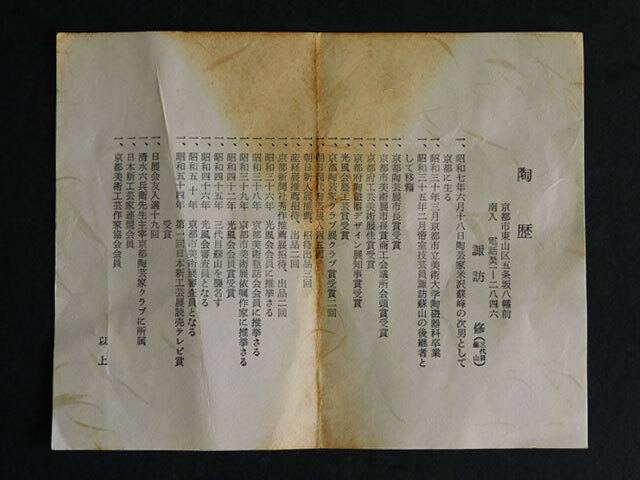 陶歴
京都市東山区五条坂八幡前
南入　電話<56>一―二八四六
諏訪　修（三代目蘇山）
一、昭和七年六月十八日陶芸家米沢蘇峰の次男として
京都に生る
一、昭和三十年三月京都市立美術大学陶磁器科卒業
一、昭和三十五年二月帝室技芸員諏訪蘇山の後継者と
して移籍
一、京都陶芸展市長賞受賞
一、京都市美術展市長賞商工会議所会頭賞受賞
一、京都府工芸美術展佳賞受賞
一、京都府陶磁器デザイン展知事賞受賞
一、光風会展工芸賞受賞
一、京都陶芸家クラブ展クラブ賞受賞二回
一、朝日
一、朝日新人展推薦、招待出品三回
一、産経展推薦招待、出品二回
一、京都新聞社秀作展招待、出品二回
一、昭和三六年　光風会会員に推挙さる
一、昭和三八年　京都美術懇話会会員に推挙さる
一、昭和三九年　京都市美術展依嘱作家に推挙さる
一、昭和四二年　光風会会員賞受賞
一、昭和四五年　三代目蘇山を襲名す
一、昭和四六年　光風会審査員となる
一、昭和五十年　京都市美術展審査員となる
一、昭和五十四年　第一回日本新工芸展読売テレビ賞
受賞
一、日展会友入選十九回
一、清水六兵衛先生主宰京都陶芸家クラブに所属
一、日本新工芸家連盟会員
一、京都美術工芸作家協会会員
以上